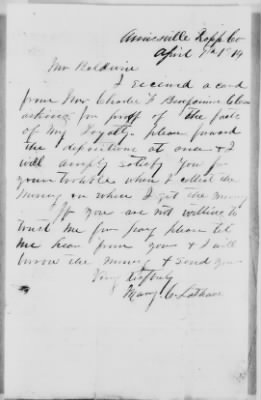 April 9th 1879
Mr Baldwin
I received a card
from Mr. Charles F Benjamin
asking for proof of the fact
of my Loyalty. please forward
the depositions at once & I
will amply satisfy you for
your trouble when I collect the
money or when I get the money
If you are not willing to
trust me for pay please let
me hear from you & I will
borrow the money & send you
Very truly
Mary C. Latham